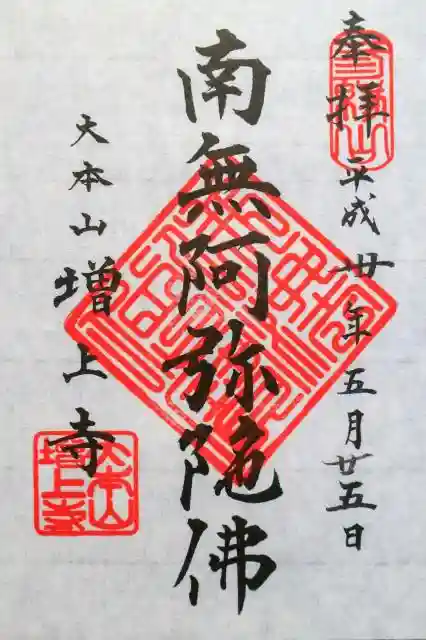 奉拝
平成卅年五月廿五日
南無阿弥陀佛
大本山
増上寺
大本山
増上寺